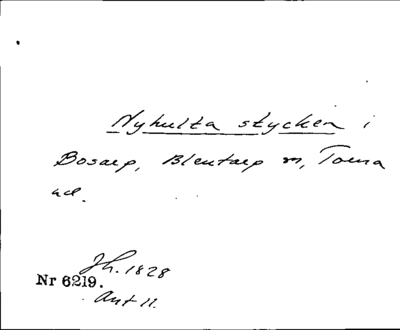 Nyhulta stycken i
Bosarp, Blentarp sn, Torna
hd.
Jh. 1828
Nr 6219.
Ant 11.